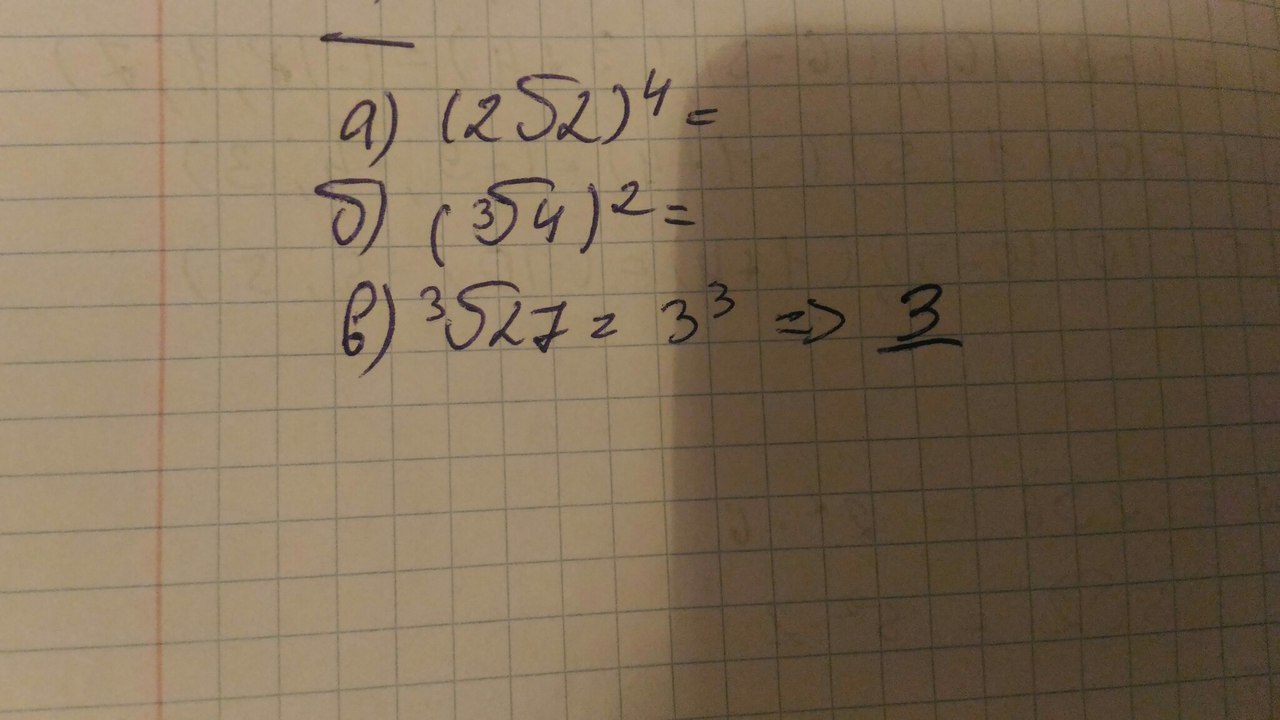 а) (2√2)⁴ =
б) (³√4)² =
в) ³√27 = 3³ => 3